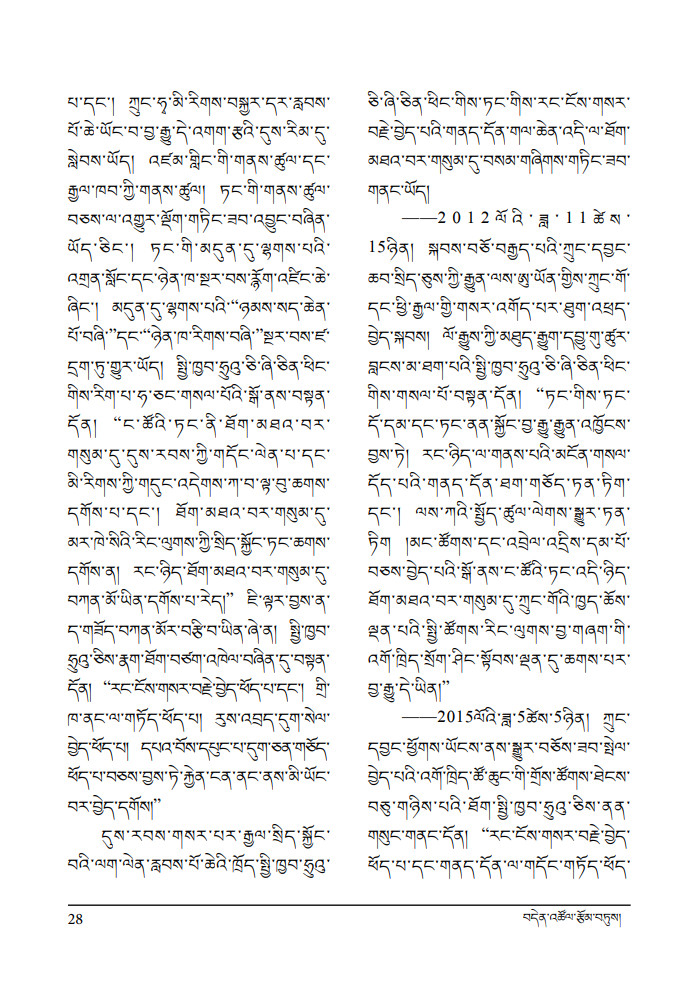 པ་དང་། ཀྲུང་ཧྭ་མི་རིགས་བསྐྱར་དར་རླབས་
པོ་ཆེ་ཡོང་བ་བྱ་རྒྱུ་དེ་འགག་རྩའི་དུས་རིམ་དུ་
སླེབས་ཡོད། འཛམ་གླིང་གི་གནས་ཚུལ་དང་
རྒྱལ་ཁབ་ཀྱི་གནས་ཚུལ། ཏང་གི་གནས་ཚུལ་
བཅས་ལ་འགྱུར་ལྡོག་གཏིང་ཟབ་འབྱུང་བཞིན་
ཡོད་ཅིང་། ཏང་གི་མདུན་དུ་ལྷགས་པའི་
འགྲན་སློང་དང་ཉེན་ཁ་སྔར་བས་རྙོག་འཛིང་ཆེ་
ཞིང་། མདུན་དུ་ལྷགས་པའི་“ཉམས་སད་ཆེན་
པོ་བཞི་”དང་“ཉེན་ཁ་རིགས་བཞི་”སྔར་བས་ཛ་
དྲག་ཏུ་གྱུར་ཡོད། སྤྱི་ཁྱབ་ཧྲུའུ་ཅི་ཞི་ཅིན་ཕིང་
གིས་རིག་པ་ཧ་ཅང་གསལ་པོའི་སྒོ་ནས་བསྟན་
དོན། “ང་ཚོའི་ཏང་ནི་ཐོག་མཐའ་བར་
གསུམ་དུ་དུས་རབས་ཀྱི་གདོང་ལེན་པ་དང་
མི་རིགས་ཀྱི་གདུང་འདེགས་ཀ་བ་ལྟ་བུ་ཆགས་
དགོས་པ་དང་། ཐོག་མཐའ་བར་གསུམ་དུ་
མར་ཁེ་སིའི་རིང་ལུགས་ཀྱི་སྲིད་སྐྱོང་ཏང་ཆགས་
དགོས་ན། རང་ཉིད་ཐོག་མཐའ་བར་གསུམ་དུ་
བཀན་མོ་ཡིན་དགོས་པ་རེད།” ཇི་ལྟར་བྱས་ན་
ད་གཟོད་བཀན་མོར་བརྩི་བ་ཡིན་ཞེ་ན། སྤྱི་ཁྱབ་
ཧྲུའུ་ཅིས་རྣག་ཐོག་བཙག་འཁེལ་བཞིན་དུ་བསྟན་
དོན། “རང་ངོས་གསར་བརྗེ་བྱེད་ཕོད་པ་དང་། གྲི་
ཁ་ནང་ལ་གཏོད་ཕོད་པ། རུས་འབྲད་དུག་སེལ་
བྱེད་ཕོད་པ། དཔའ་བོས་དཔུང་པ་དུག་ཅན་གཅོད་
ཕོད་པ་བཅས་བྱས་ཏེ་རྐྱེན་ངན་ནང་ནས་མི་ཡོང་
བར་བྱེད་དགོས།”
དུས་རབས་གསར་པར་རྒྱལ་སྲིད་སྐྱོང་
བའི་ལག་ལེན་རླབས་པོ་ཆེའི་ཁྲོད་སྤྱི་ཁྱབ་ཧྲུའུ་
ཅི་ཞི་ཅིན་ཕིང་གིས་ཏང་གིས་རང་ངོས་གསར་
བརྗེ་བྱེད་པའི་གནད་དོན་གལ་ཆེན་འདི་ལ་ཐོག་
མཐའ་བར་གསུམ་དུ་བསམ་གཞིགས་གཏིང་ཟབ་
གནང་ཡོད།
——2012ལོའི་ཟླ་11ཚེས་
15ཉིན། སྐབས་བཅོ་བརྒྱད་པའི་ཀྲུང་དབྱང་
ཆབ་སྲིད་ཅུས་ཀྱི་རྒྱུན་ལས་ཨུ་ཡོན་གྱིས་ཀྲུང་གོ་
དང་ཕྱི་རྒྱལ་གྱི་གསར་འགོད་པར་ཐུག་འཕྲད་
བྱེད་སྐབས། ལོ་རྒྱུས་ཀྱི་མཐུད་རྒྱུག་དབྱུ་གུ་ཚུར་
བླངས་མ་ཐག་པའི་སྤྱི་ཁྱབ་ཧྲུའུ་ཅི་ཞི་ཅིན་ཕིང་
གིས་གསལ་པོ་བསྟན་དོན། “ཏང་གིས་ཏང་
དོ་དམ་དང་ཏང་ནན་སྐྱོང་བྱ་རྒྱུ་རྒྱུན་འཁྱོངས་
བྱས་ཏེ། རང་ཉིད་ལ་གནས་པའི་མངོན་གསལ་
དོད་པའི་གནད་དོན་ཐག་གཅོད་ཏན་ཏིག་
དང་། ལས་ཀའི་སྤྱོད་ཚུལ་ལེགས་སྒྱུར་ཏན་
ཏིག །མང་ཚོགས་དང་འབྲེལ་འདྲིས་དམ་པོ་
བཅས་བྱེད་པའི་སྒོ་ནས་ང་ཚོའི་ཏང་འདི་ཉིད་
ཐོག་མཐའ་བར་གསུམ་དུ་ཀྲུང་གོའི་ཁྱད་ཆོས་
ལྡན་པའི་སྤྱི་ཚོགས་རིང་ལུགས་བྱ་གཞག་གི་
འགོ་ཁྲིད་སྲོག་ཤིང་སྟོབས་ལྡན་དུ་ཆགས་པར་
བྱ་རྒྱུ་དེ་ཡིན།”
——2015ལོའི་ཟླ་5ཚེས་5ཉིན། ཀྲུང་
དབྱང་ཕྱོགས་ཡོངས་ནས་སྒྱུར་བཅོས་ཟབ་སྤེལ་
བྱེད་པའི་འགོ་ཁྲིད་ཚོ་ཆུང་གི་གྲོས་ཚོགས་ཐེངས་
བཅུ་གཉིས་པའི་ཐོག་སྤྱི་ཁྱབ་ཧྲུའུ་ཅིས་ནན་
གསུང་གནང་དོན། “རང་ངོས་གསར་བརྗེ་བྱེད་
ཕོད་པ་དང་གནད་དོན་ལ་གདོང་གཏོད་ཕོད་
28
བདེན་འཚོལ་རྩོམ་བཏུས།